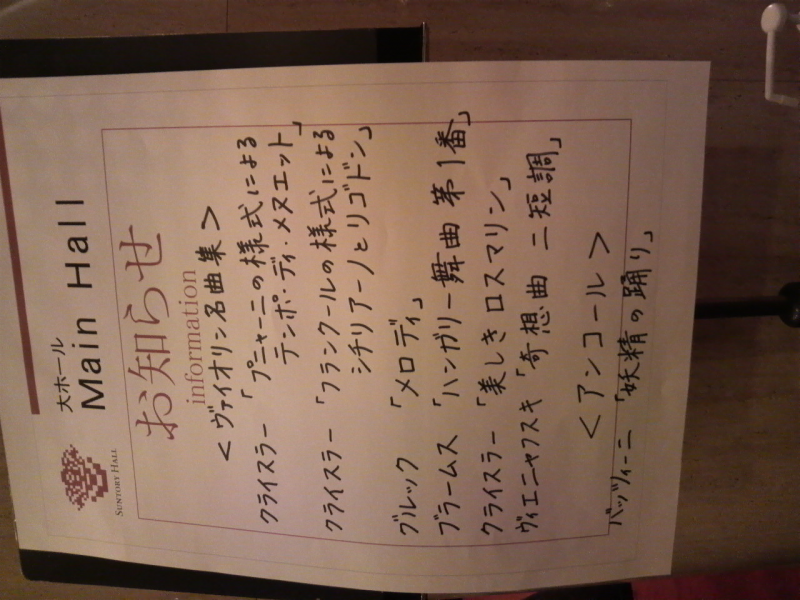 SUNTORY HALL
大ホール
Main Hall
お知らせ
information
<ヴァイオリン名曲集>
クライスラー「プニャーニの様式による
テンポ・ディ・メヌエット」
クライスラー「フランクールの様式による
シチリアーノとリゴドン」
グルック「メロディ」
ブラームス「ハンガリー舞曲 第1番」
クライスラー「美しきロスマリン」
ヴィエニャフスキ「奇想曲 ニ短調」
<アンコール>
バッヅィーニ「妖精の踊り」